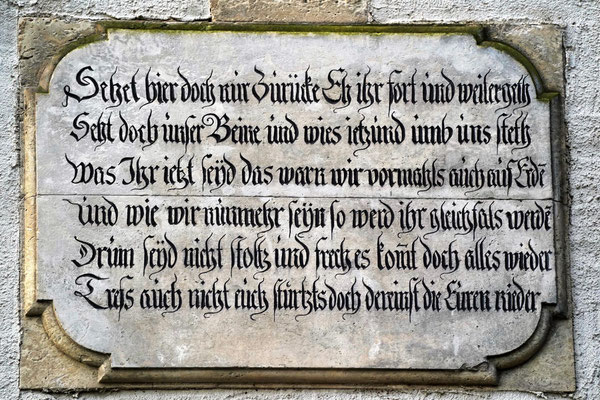 Sehet hier doch nur Zurücke Eh ihr fort und weitergeth
Seht doch unser Beine und wies ietzund umb uns steth
Was Ihr ietzt seyd das warn wir vormahls auch auf Erdē
Und wie wir nunmehr seyn so werd ihr gleichfals werdē
Drum seyd nicht stoltz und frech es kom̄t doch alles wieder
Trefs auch nicht euch stürtzts doch dereinst die Euren nieder